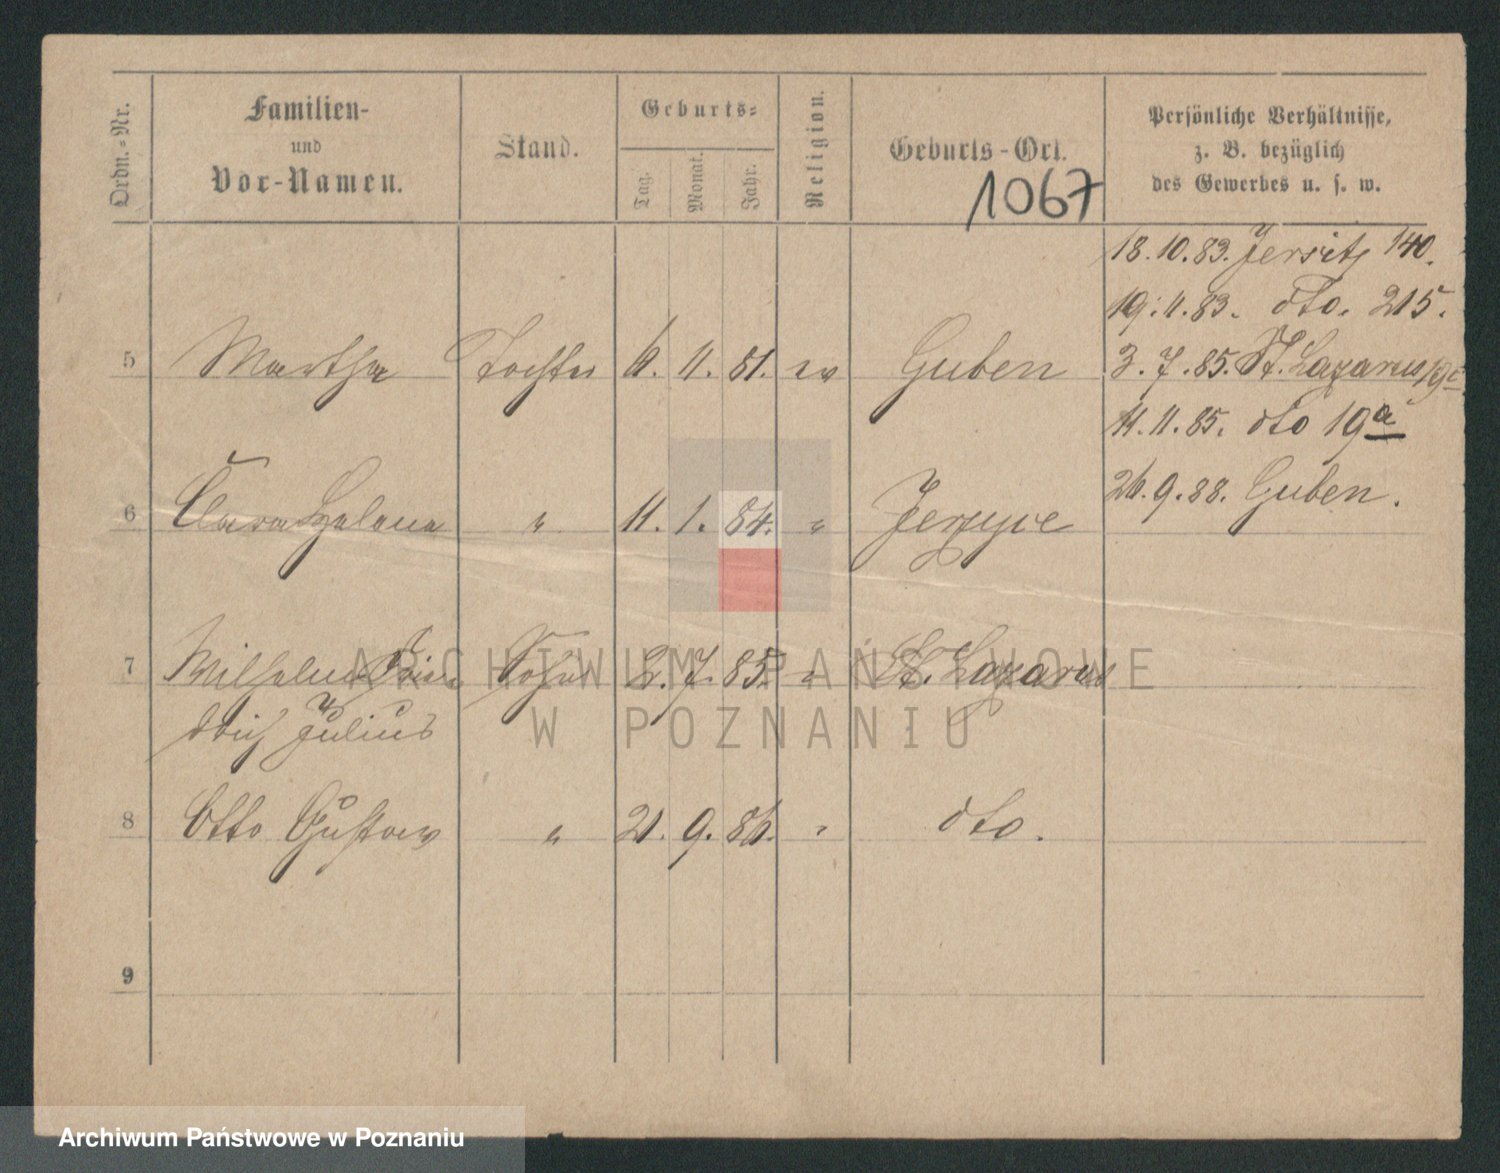 Ordn.-Nr.
Familien-
und
Vor-Namen.
Stand.
Geburts-
Tag.
Monat.
Jahr.
Religion.
Geburts-Ort.
Persönliche Verhältnisse,
z. B. bezüglich
des Gewerbes u. s. w.
1067
18.10.83. Jersitz 140.
19.11.83. dto. 215.
5 Martha Tochter 6. 11. 81. ev Guben 3.7.85. St. Lazarus
11.11.85. dto 19a
26.9.88. Guben.
6 Clara Helene " 11. 1. 84. "
7 Wilhelm Frie- Sohn 2. 7. 85. " St. Lazarus
drich Julius
8 Otto Gustav " 21. 9. 86. " dto.
9
ARCHIWUM PAŃSTWOWE
W POZNANIU
Archiwum Państwowe w Poznaniu